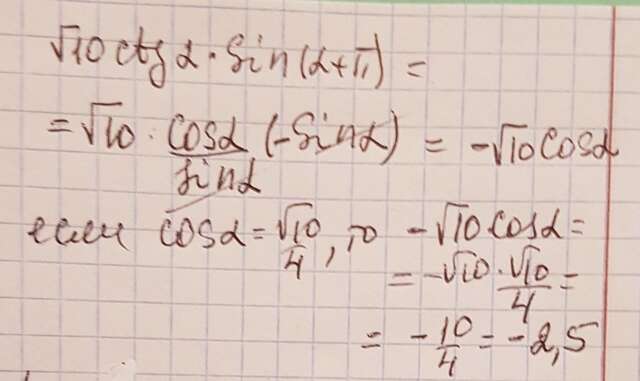 √10 ctg α · sin(α+π) =
= √10 · cosα/sinα (-sinα) = -√10 cosα
если cosα = √10/4, то -√10 cosα =
= -√10 · √10/4 =
= -10/4 = -2,5